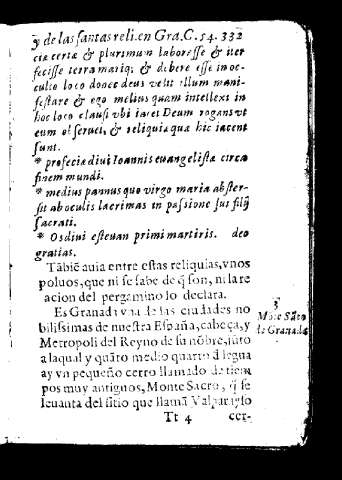 y de las santas reli. en Gra. C. 54. 332
cia certa & plurimun laborasse & iter
fecisse terra mariq; & debere esse in oc-
culto loco donec deus velit illum mani-
festare & ego melius quam intellexi in
hoc loco clausi vbi iacet Deum rogans vt
eum obseruet, & reliquia quæ hic iacent
sunt.
* profecia diui Ioannis euangelistæ circa
finem mundi.
* medius pannus quo virgo maria abster-
sit ab oculis lacrimas in passione sui filij
sacrati.
* Os diui esteuan primi martiris. deo
gratias.
Tābiē auia entre estas reliquias, vnos
poluos, que ni se sabe de q̄ son, ni la re
lacion del pergamino lo declara.
Es Granada vna de las ciudades no
bilissimas de nuestra España, cabeça, y
Metropoli del Reyno de su nōbre, jūto
a la qual y quāto medio quarto d̄ legua
ay vn pequeño cerro llamado de tiem
pos muy antiguos, Monte Sacro, q̄ se
leuanta del sitio que llamā Valparayso
3
Mōte Sāto
de Granada
Tt 4 cer-